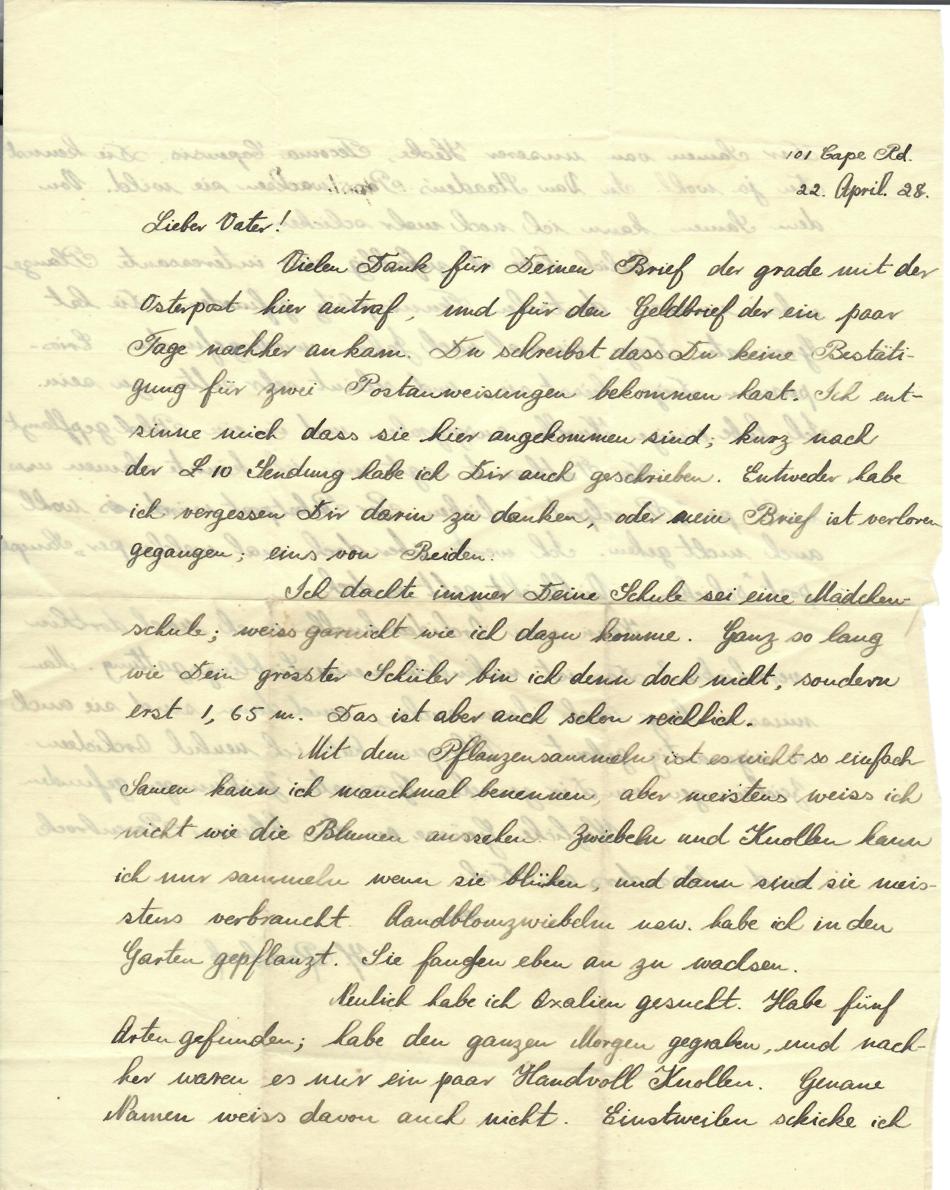 101 Cape Rd.
22. April. 28.
Lieber Vater!
Vielen Dank für Deinen Brief der grade mit der
Osterpost hier antraf, und für den Geldbrief der ein paar
Tage nachher ankam. Du schreibst dass Du keine Bestäti-
gung für zwei Postanweisungen bekommen hast. Ich ent-
sinne mich dass sie hier angekommen sind; kurz nach
der £ 10 Sendung habe ich Dir auch geschrieben. Entweder habe
ich vergessen Dir darin zu danken, oder mein Brief ist verloren
gegangen; eins von Beiden.
Ich dachte immer Deine Schule sei eine Mädchen-
schule; weiss garnicht wie ich dazu komme. Ganz so lang
wie Dein grösster Schüler bin ich denn doch nicht, sondern
erst 1,65 m. Das ist aber auch schon reichlich.
Mit dem Pflanzensammeln ist es nicht so einfach
Samen kann ich manchmal benennen, aber meistens weiss ich
nicht wie die Blumen aussehen. Zwiebeln und Knollen kann
ich nur sammeln wenn sie blühen, und dann sind sie meis-
stens verbraucht. Aandblomzwiebeln usw. habe ich in den
Garten gepflanzt. Sie fangen eben an zu wachsen.
Neulich habe ich Oxalien gesucht. Habe fünf
Arten gefunden; habe den ganzen Morgen gegraben, und nach-
her waren es nur ein paar Handvoll Knollen. Genaue
Namen weiss davon auch nicht. Einstweilen schicke ich